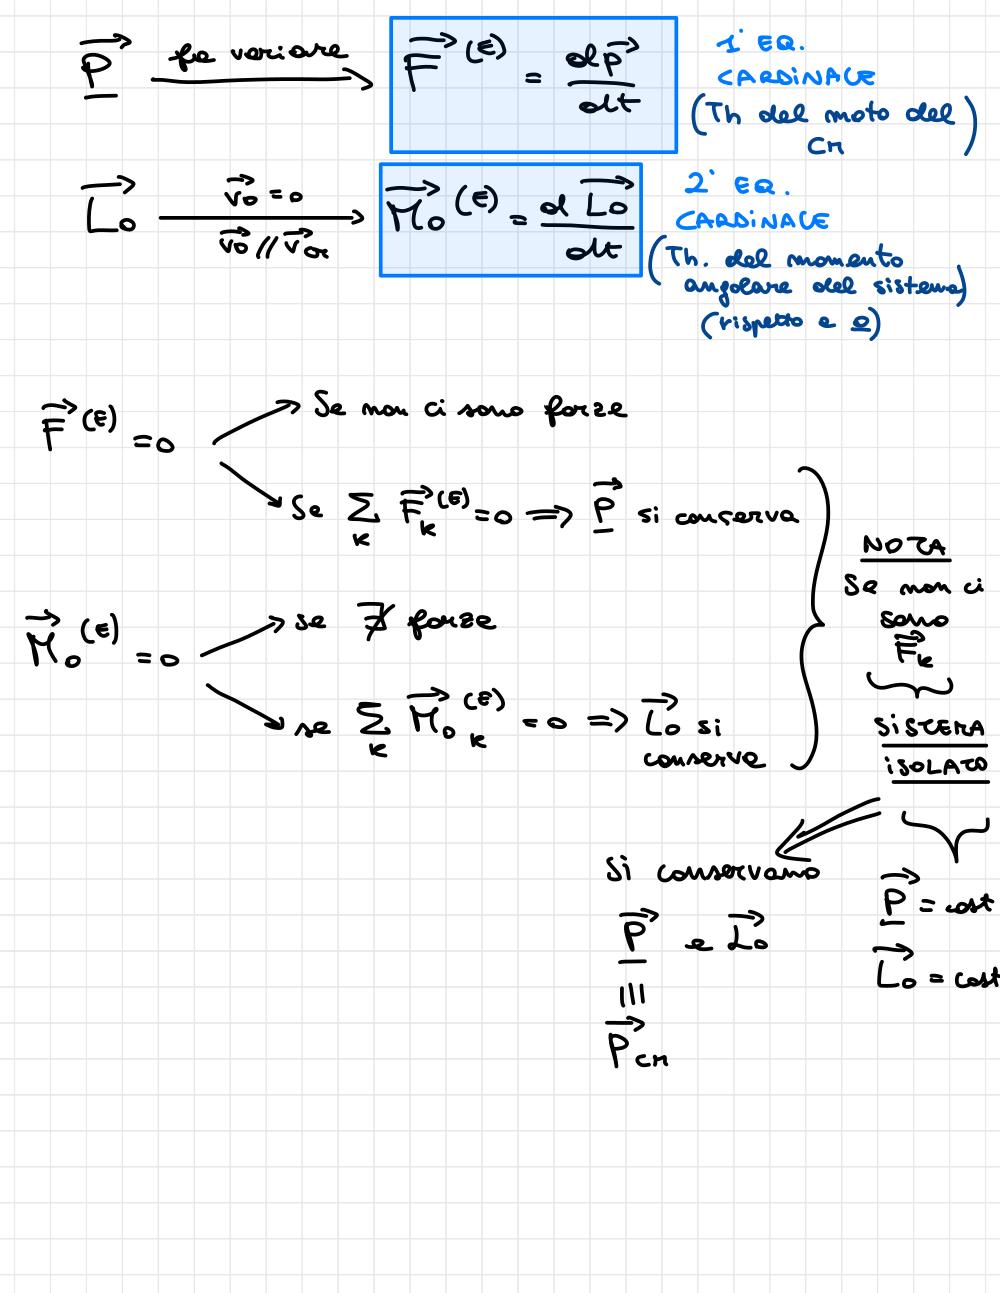 P⃗ fa variare F⃗^(E) = dp⃗/dt 1ª EQ. CARDINALE
(Th del moto del CM)
L⃗o v⃗o = 0 v⃗o // v⃗CM M⃗o^(E) = dL⃗o/dt 2ª EQ. CARDINALE
(Th. del momento
angolare del sistema)
(rispetto a O)
F⃗^(E) = 0 Se non ci sono forze
Se Σk F⃗k^(E) = 0 ⇒ P⃗ si conserva
M⃗o^(E) = 0 se ∄ forze
se Σk M⃗ok^(E) = 0 ⇒ L⃗o si
conserva
NOTA
Se non ci
sono
F⃗k
SISTEMA
ISOLATO
Si conservano
P⃗ e L⃗o
≡
P⃗CM
P⃗ = cost
L⃗o = cost